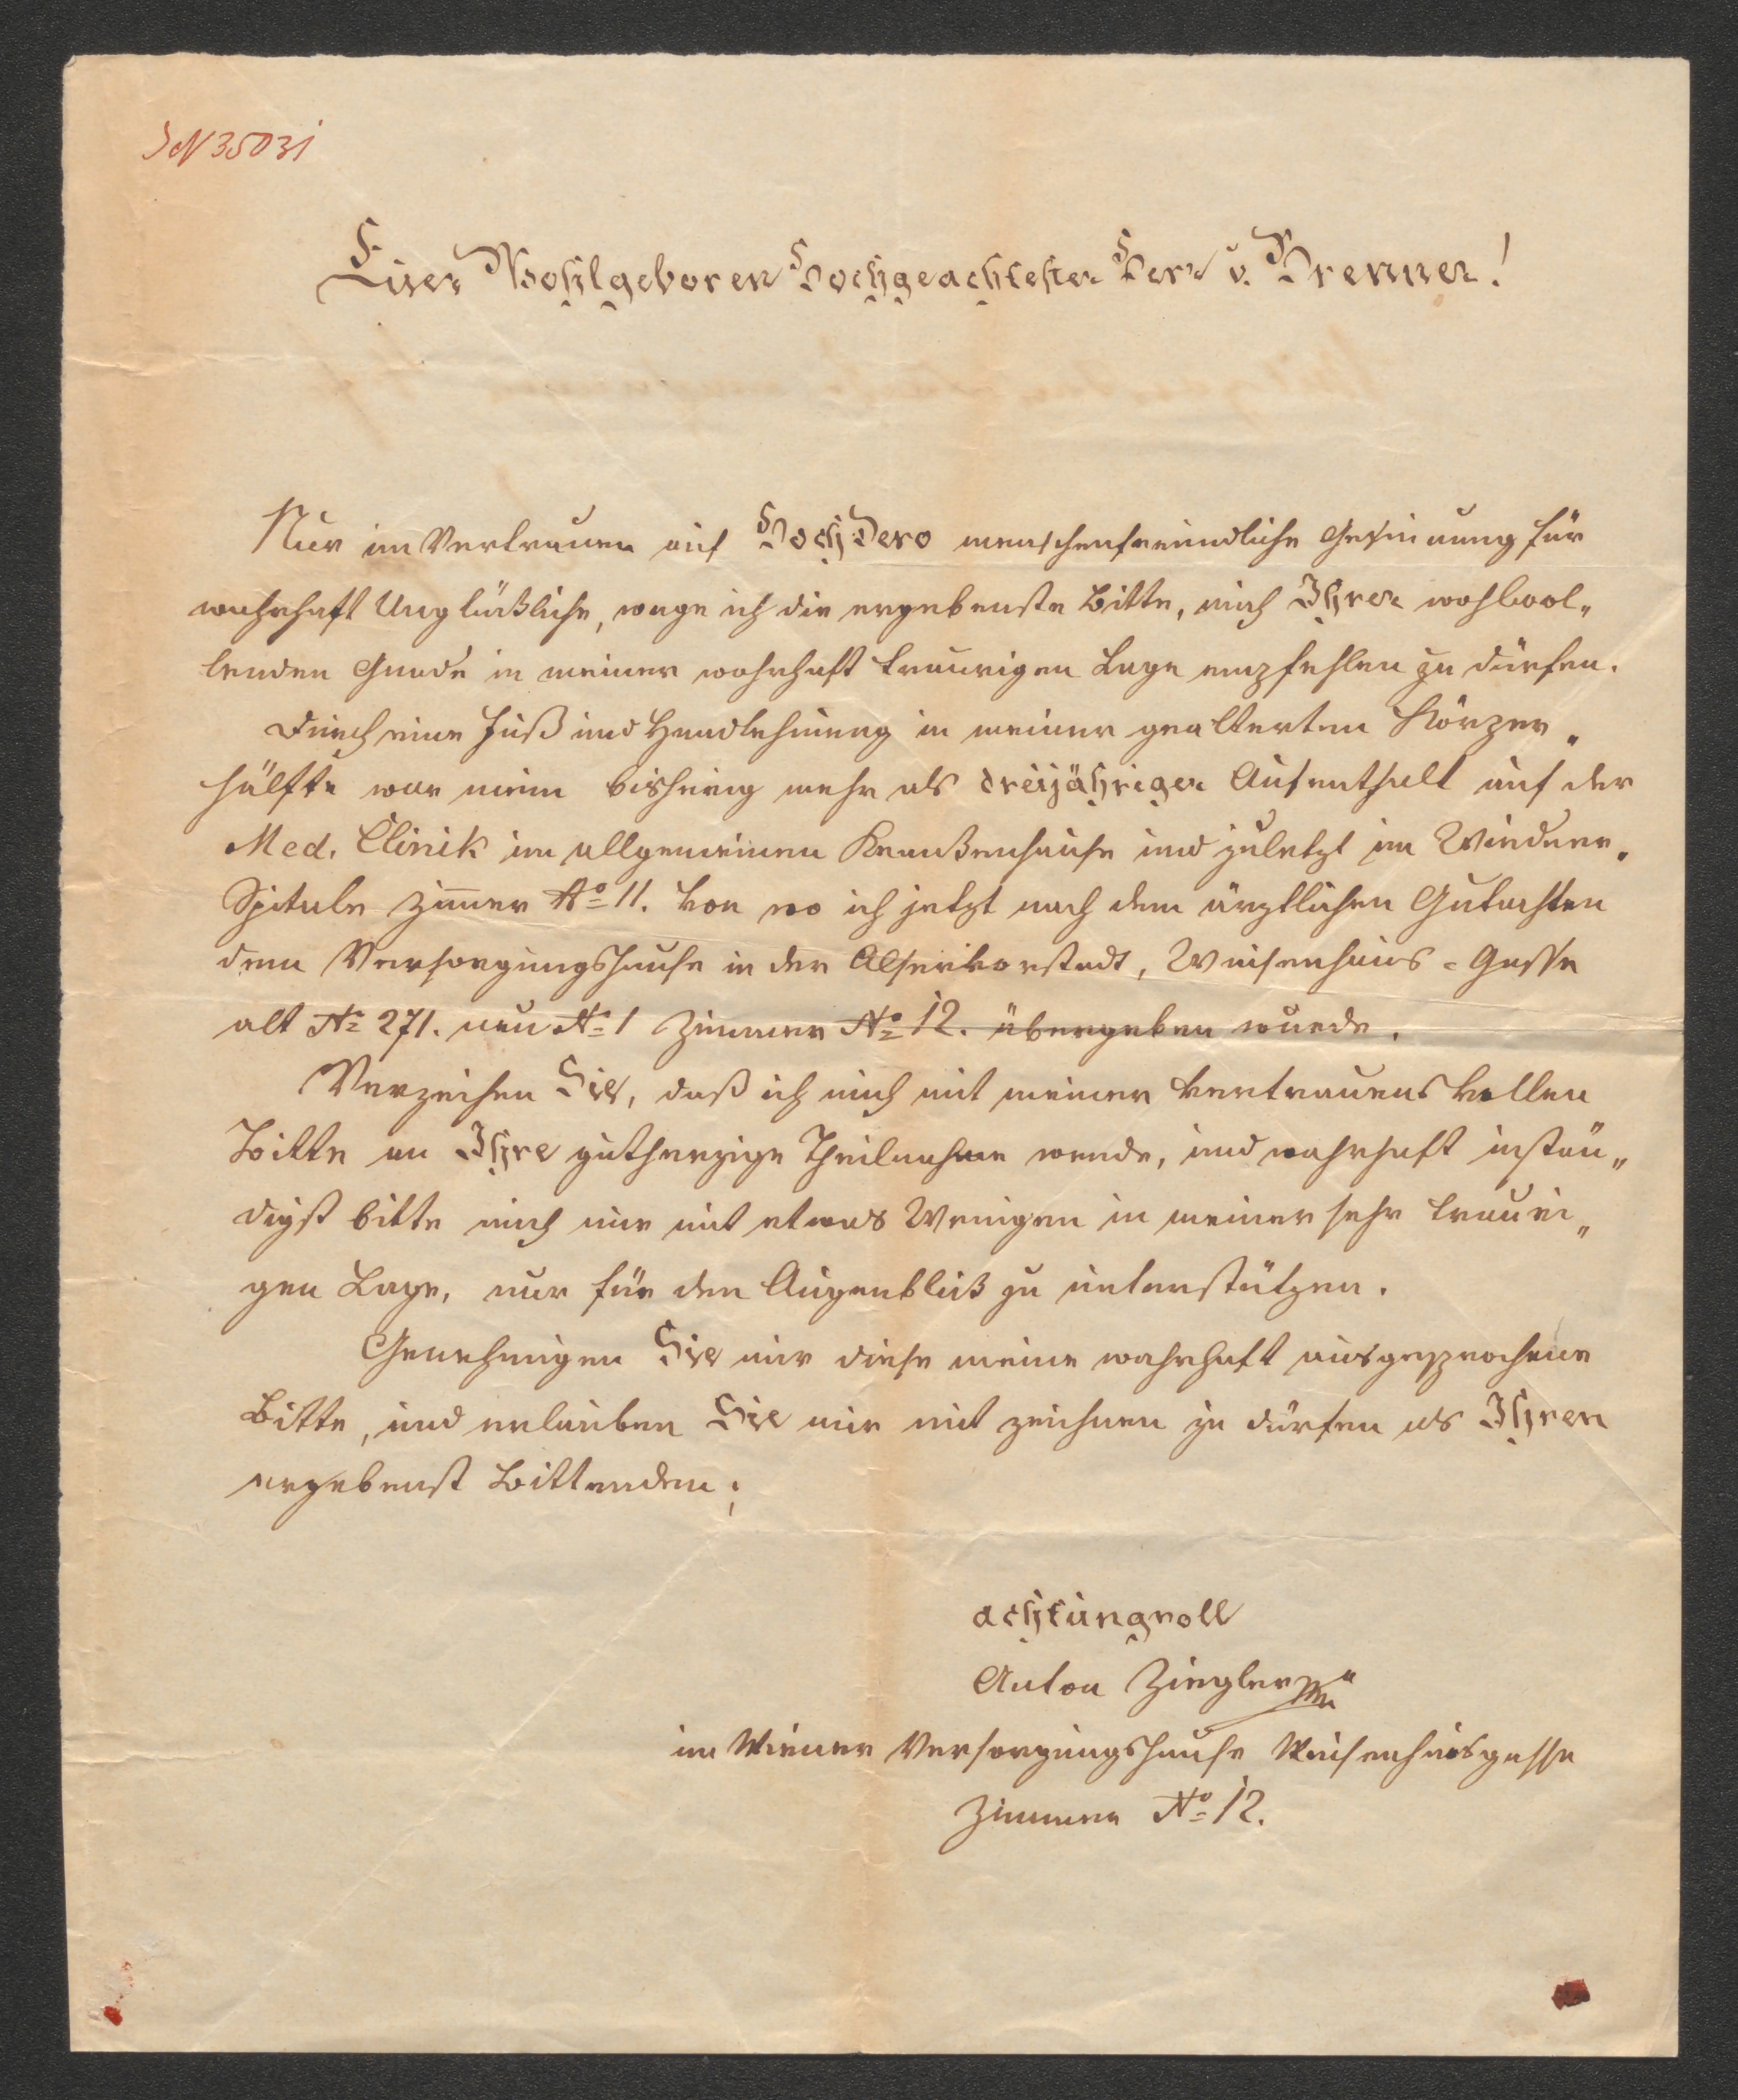 JN 35031
Euer Wohlgeboren Hochgeachtester Herr v. Brenner!
Nur im Vertrauen auf HochDero menschenfreundliche Gesinnung für
wahrhaft Unglückliche, wage ich die ergebenste Bitte, mich Ihrer wohlwol„
lenden Gnade in meiner wahrhaft traurigen Lage empfehlen zu dürfen.
Durch eine Fuß und Handlähmung in meiner gealterten Körper„
hälfte war mein bisherig mehr als dreijähriger Aufenthalt auf der
Med. Clinik im allgemeinen Krankenhause und zuletzt im Wiedner„
Spitale Zimmer No 11. von wo ich jetzt nach dem ärztlichen Gutachten
dem Versorgungshause in der Alservorstadt, Waisenhaus-Gasse
alt No 271. neu No 1 Zimmer No 12. übergeben wurde.
Verzeihen Sie, daß ich mich mit meiner vertrauensvollen
Bitte an Ihre gutherzige Theilnahme wende, und wahrhaft instän„
digst bitte mich nur mit etwas Wenigen in meiner sehr trauri„
gen Lage, nur für den Augenblick zu unterstützen.
Genehmigen Sie mir diese meine wahrhaft ausgesprochene
Bitte, und erlauben Sie mir mit zeichnen zu dürfen als Ihren
ergebenst Bittenden;
achtungvoll
Anton Ziegler
im Wiener Versorgungshause Waisenhausgasse
Zimmer No 12.